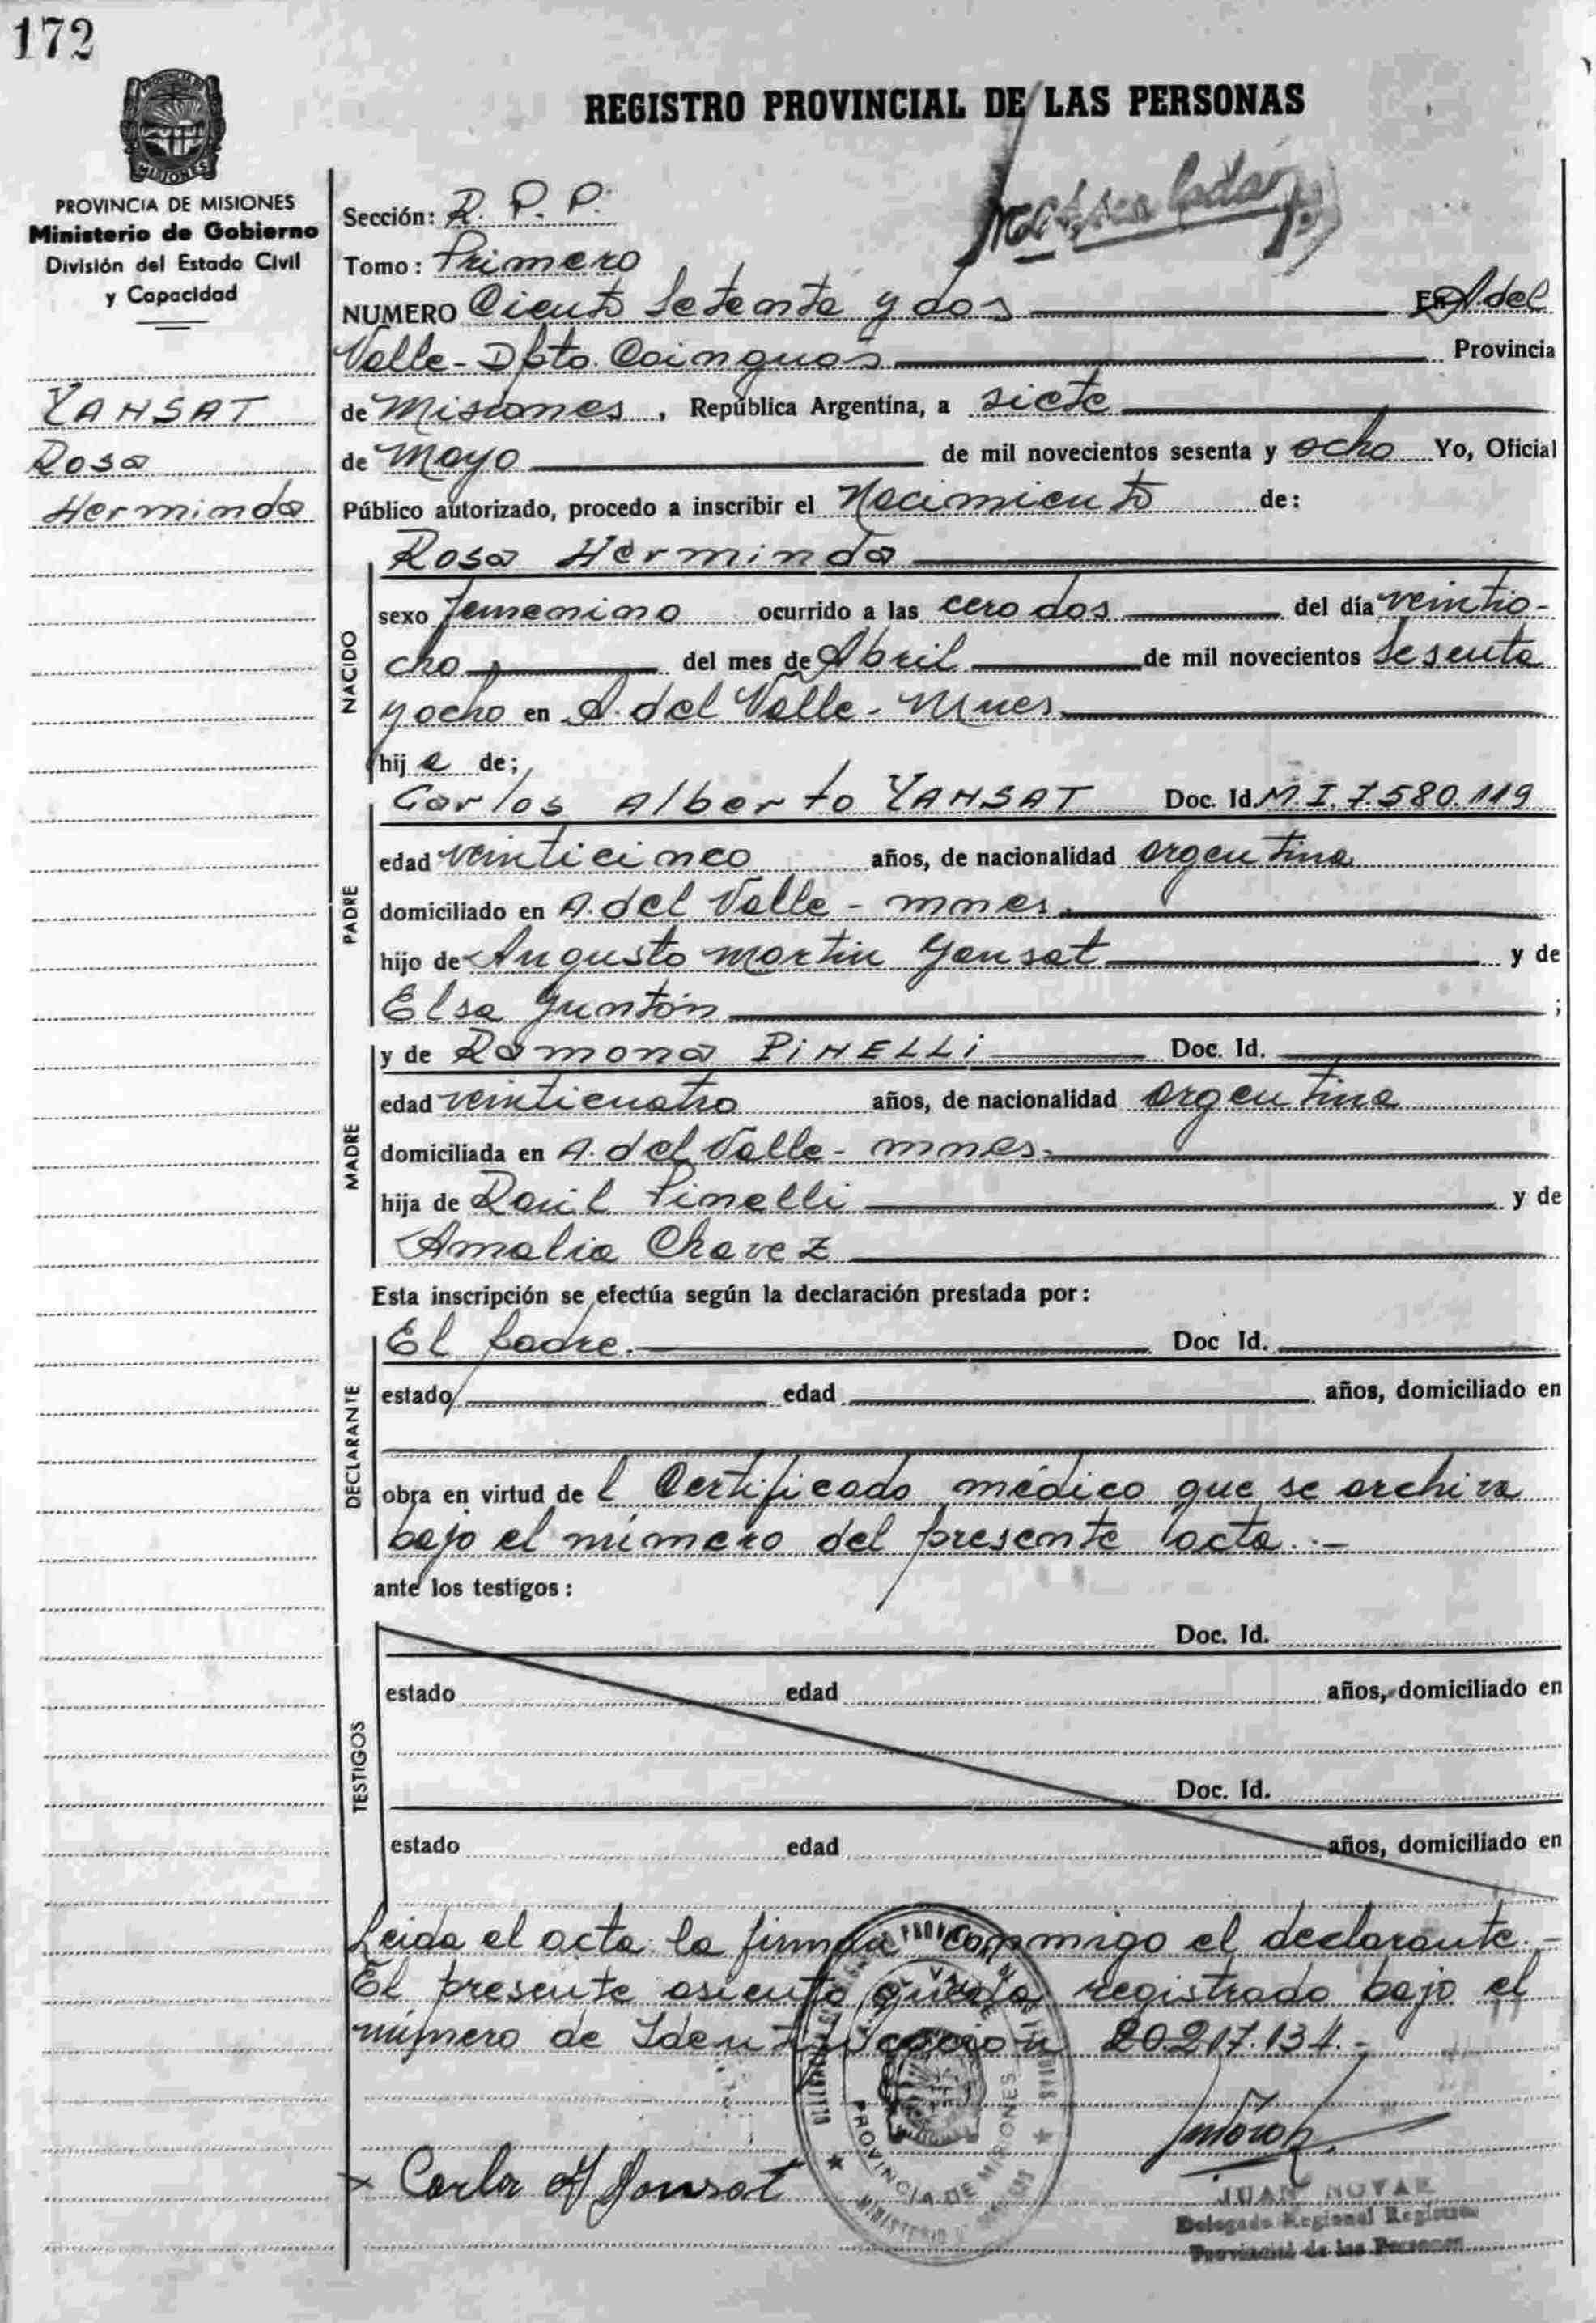 172
REGISTRO PROVINCIAL DE LAS PERSONAS
PROVINCIA DE MISIONES
Ministerio de Gobierno
División del Estado Civil
y Capacidad
YANSAT
Rosa
Herminda
Sección: R. P. P.
Tomo: Primero
NUMERO Ciento Setenta y dos En A. del
Valle - Dpto. Cainguas Provincia
de Misiones, República Argentina, a siete
de Mayo de mil novecientos sesenta y ocho Yo, Oficial
Público autorizado, procedo a inscribir el Nacimiento de:
Rosa Herminda
NACIDO
sexo femenino ocurrido a las cero dos del día veintio-
cho del mes de Abril de mil novecientos sesenta
y ocho en A. del Valle - Mnes
hija de;
PADRE
Carlos Alberto YANSAT Doc. Id. M. I. 7.580.119
edad veinticinco años, de nacionalidad argentina
domiciliado en A. del Valle - mnes.
hijo de Augusto Martin Yansat y de
Elsa Yuntón ;
MADRE
y de Ramona PINELLI Doc. Id.
edad veinticuatro años, de nacionalidad argentina
domiciliada en A. del Valle - mnes.
hija de Raúl Pinelli y de
Amalia Chavez
Esta inscripción se efectúa según la declaración prestada por:
DECLARANTE
El padre. Doc Id.
estado edad años, domiciliado en
obra en virtud del Certificado médico que se archiva
bajo el número del presente acta.-
ante los testigos:
TESTIGOS
Doc. Id.
estado edad años, domiciliado en
Doc. Id.
estado edad años, domiciliado en
Leida el acta la firma conmigo el declarante.-
El presente asiento queda registrado bajo el
número de Identificación 20.217.134.-
PROVINCIA DE MISIONES
Carlos A Yansat
JUAN NOVAK
Delegado Regional Registro
Provincial de las Personas